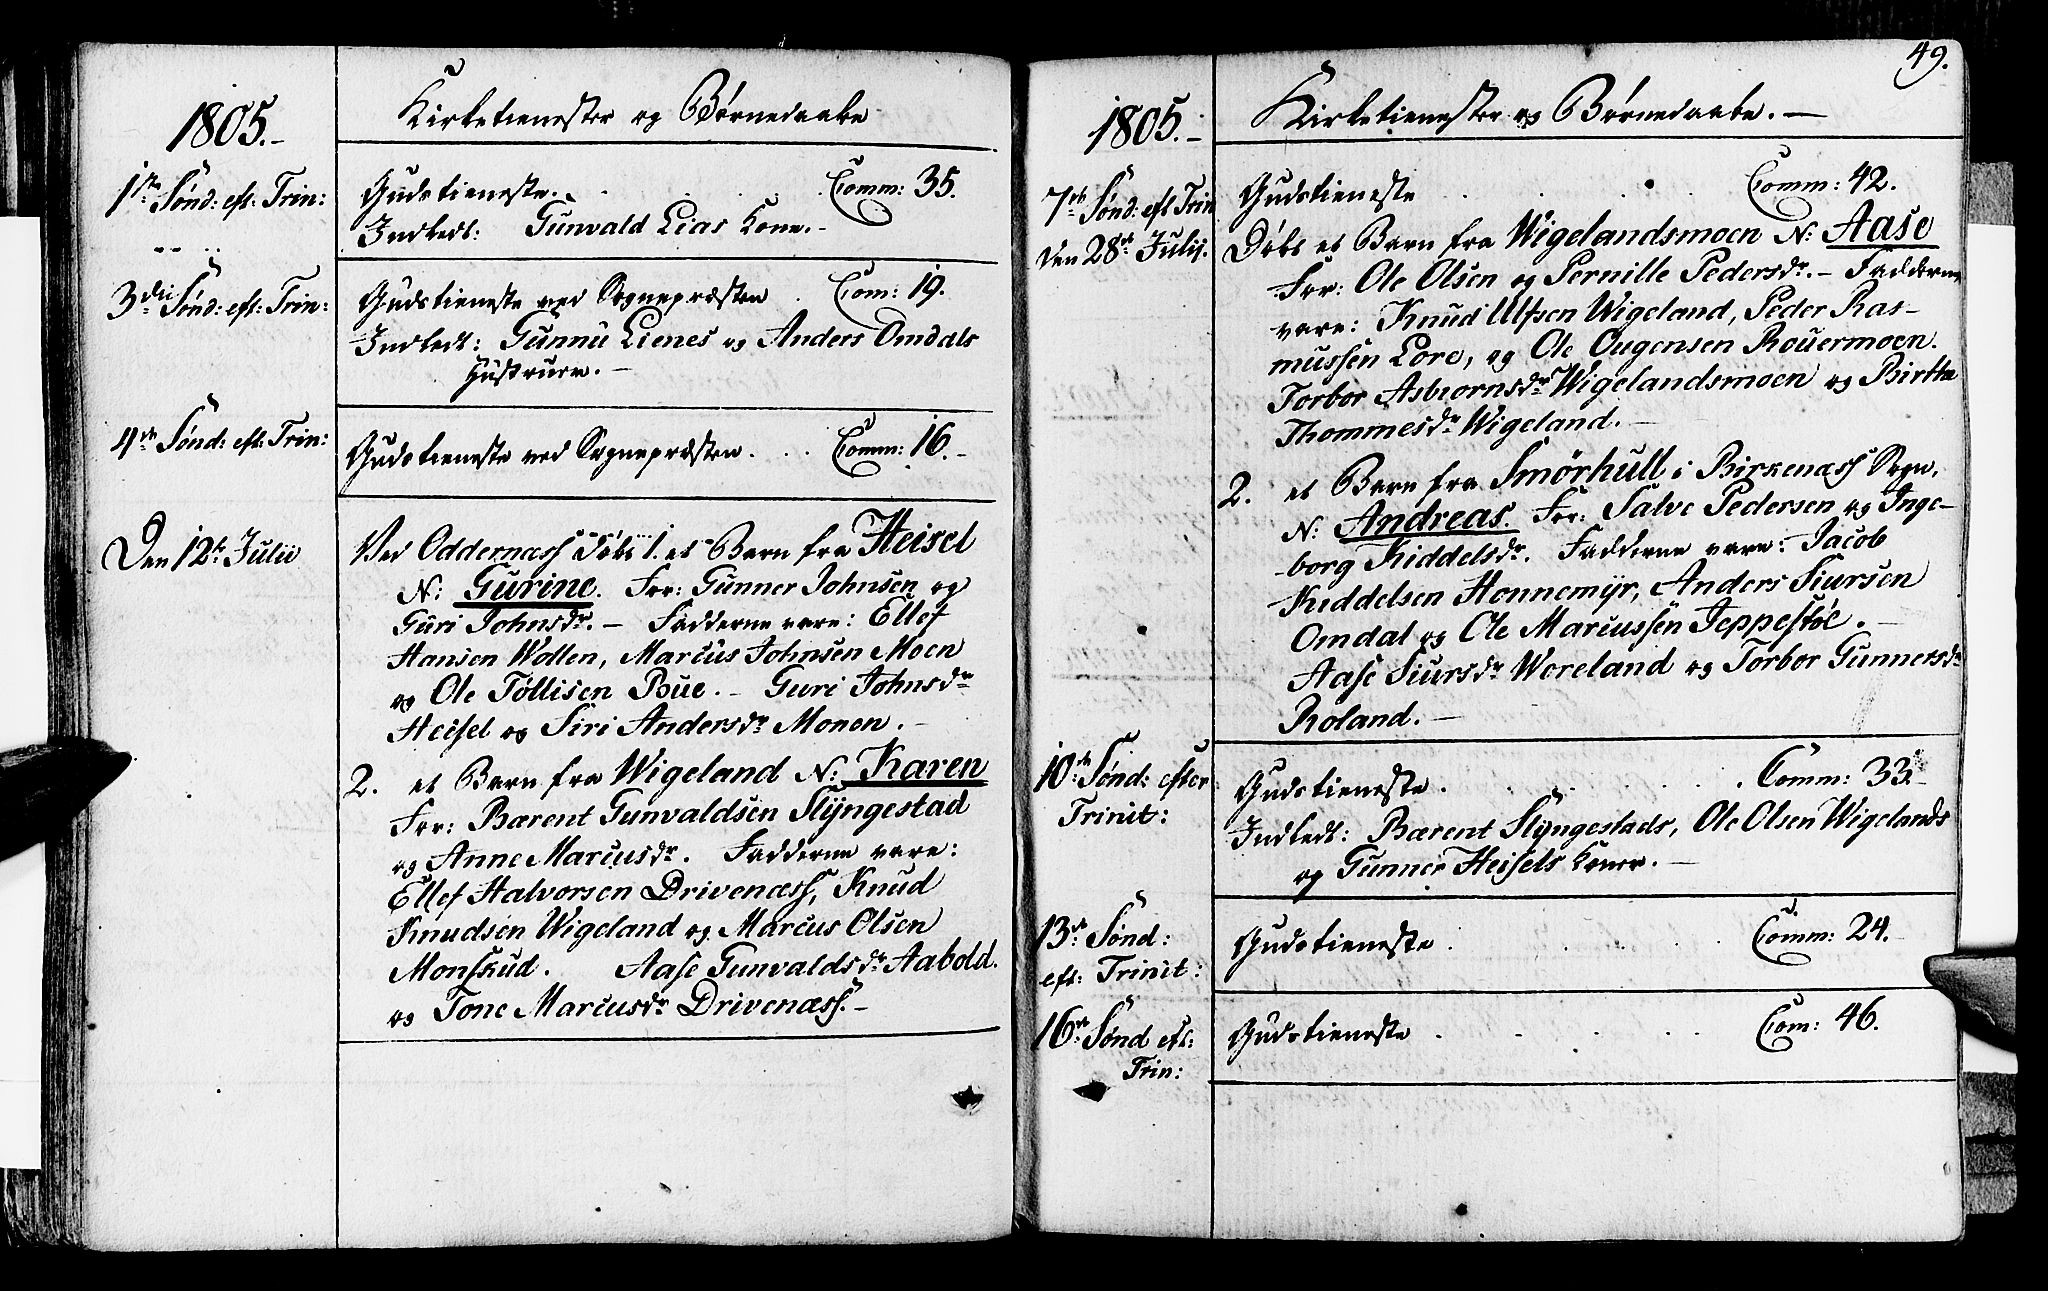 1805.-
Kirketienester og Børnedaabe
1ste Sønd: eft: Trin:
Gudstieneste. . . . Comm: 35.
Indledt: Gunvald Lias Kone.-
3die Sønd: eft: Trin:
Gudstieneste ved Sognepræsten . Com: 19.
Indledt: Gunnu Lienes og Anders Omdals
Hustruer.-
4de Sønd: eft: Trin:
Gudstieneste ved Sognepræsten. . . Comm: 16.-
Den 12te Julii
Ved Oddernæss døbt 1. et Barn fra Heisel
N: Gurine. For: Gunner Johnsen og
Guri Johnsdr.- Fadderne vare: Ellef
Hansen Wollen, Marcus Johnsen Moen
og Ole Tøllisen Bue.- Guri Johnsdr
Heisel og Siri Andersdr Monen.-
2. et Barn fra Wigeland N: Karen
For: Bærent Gunvaldsen Slÿngestad
og Anne Marcusdr. Fadderne vare:
Ellef Halvorsen Drivenæss, Knud
Knudsen Wigeland og Marcus Olsen
Monskud. Aase Gunvaldsdr Aabold.
og Tone Marcusdr Drivenæss.-
49.
1805.-
Kirketienester og Børnedaabe.-
7de Sønd: eft Trin
den 28de Julij.
Gudstieneste . . . Comm: 42.
Døbt et Barn fra Wigelandsmoen N: Aase
For: Ole Olsen og Pernille Pedersdr.- Fadderne
vare: Knud Ulfsen Wigeland, Peder Ras-
mussen Lore, og Ole Ougensen Rouermoen.
Torbor Asbiornsdr Wigelandsmoen og Birthe
Thommesdr Wigeland.-
2. et Barn fra Smørhull i Birkenæss Sogn,
N: Andreas. For: Salve Pedersen og Inge-
borg Kiddelsdr. Fadderne vare: Jacob
Kiddelsen Honnemÿr, Anders Siursen
Omdal og Ole Marcussen Jeppestøe.-
Aase Siursdr Woreland og Torbor Gunnersdr
Roland.-
10de Sønd: efter
Trinit:
Gudstieneste. . . . Comm: 33.-
Indledt: Bærent Slÿngestads, Ole Olsen Wigelands
og Gunner Heisels Koner.-
13de Sønd:
eft: Trinit:
Gudstieneste . . . Comm: 24.
16de Sønd eft:
Trin:
Gudstieneste . . . Com: 46.